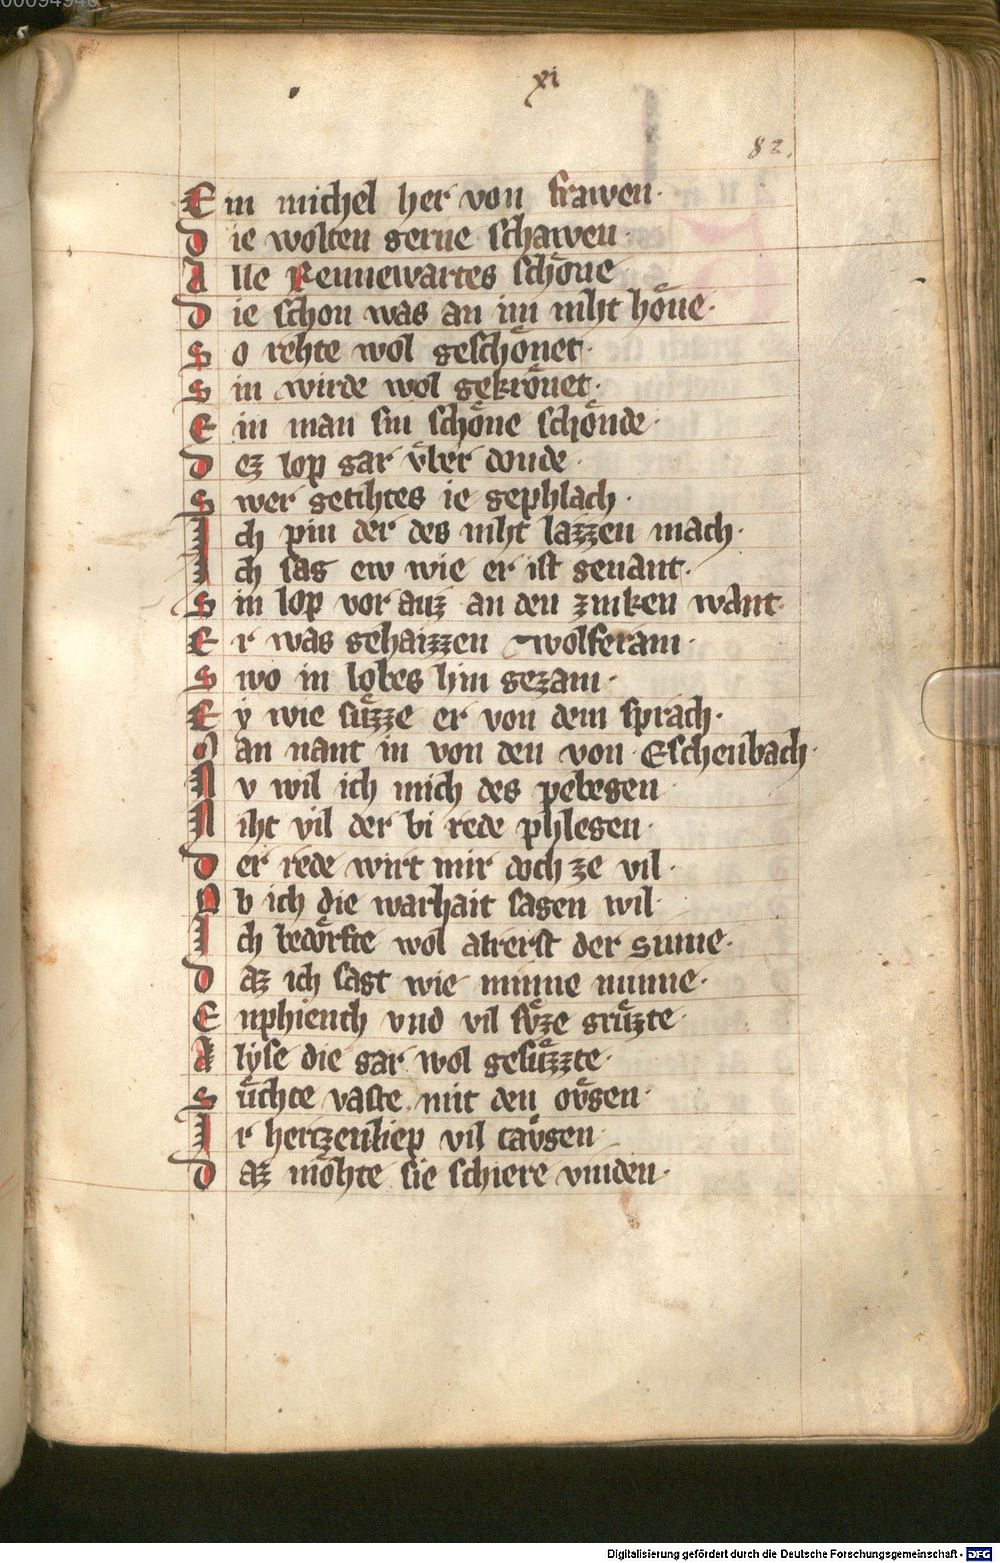 00094946
xi
82.
Ein michel her von frawen·
die wolten gerne schawen·
Alle Rennewartes schoͤne
die schon was an im niht hoͤne·
so rehte wol geschoͤnet·
sin wirde wol gekroͤnet·
Ein man sin schoͤne schoͤnde·
dez lop gar vͤber donde·
swer getihtes ie gephlach·
Ich pin der des niht lazzen mach·
Ich sag ew wie er ist genant·
sin lop vor auz an den zinken want·
Er was gehaizzen wolferam·
swo in lobes hin gezam·
Ey wie suͤzze er von dem sprach·
Man nant in von den von Eschenbach·
Nv wil ich mich des pebegen
Niht vil der bi rede phlegen·
der rede wirt mir doch ze vil·
Ob ich die warhait sagen wil·
Ich bedoͤrfte wol alrerst der sinne·
daz ich sagt wie minne minne·
Enphiench vnd vil svͤze gruͤzte·
Alyse die gar wol gesuͤzzte·
suͤchte vaste mit den oͮgen·
Ir hertzenliep vil taͮgen·
daz moͤhte sie schiere vinden·
Digitalisierung gefördert durch die Deutsche Forschungsgemeinschaft - DFG